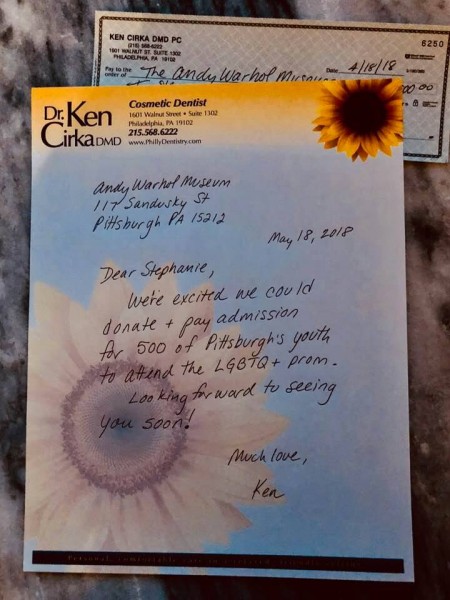 KEN CIRKA DMD PC
(215) 568-6222
1601 WALNUT ST. SUITE 1302
PHILADELPHIA, PA 19102
6250
Date 4/18/18
Pay to the order of The Andy Warhol Museum
00
Dr. Ken Cirka DMD
Cosmetic Dentist
1601 Walnut Street • Suite 1302
Philadelphia, PA 19102
215.568.6222
www.PhillyDentistry.com
Andy Warhol Museum
117 Sandusky St
Pittsburgh PA 15212
May 18, 2018
Dear Stephanie,
We're excited we could
donate + pay admission
for 500 of Pittsburgh's youth
to attend the LGBTQ+ prom.
Looking forward to seeing
you soon!
Much love,
Ken